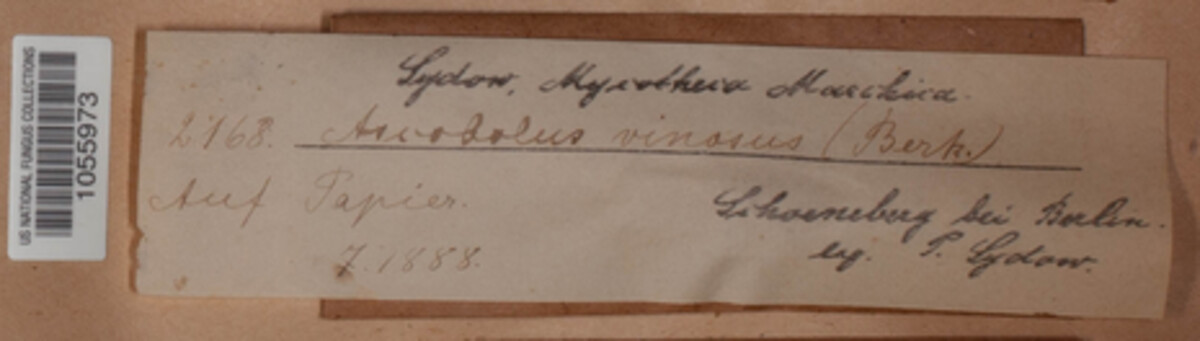 US NATIONAL FUNGUS COLLECTIONS
1055973
Sydow, Mycotheca Marchica.
2168. Ascobolus vinosus (Berk.)
Auf Papier.
Schoeneberg bei Berlin.
7.1888.
leg. P. Sydow.